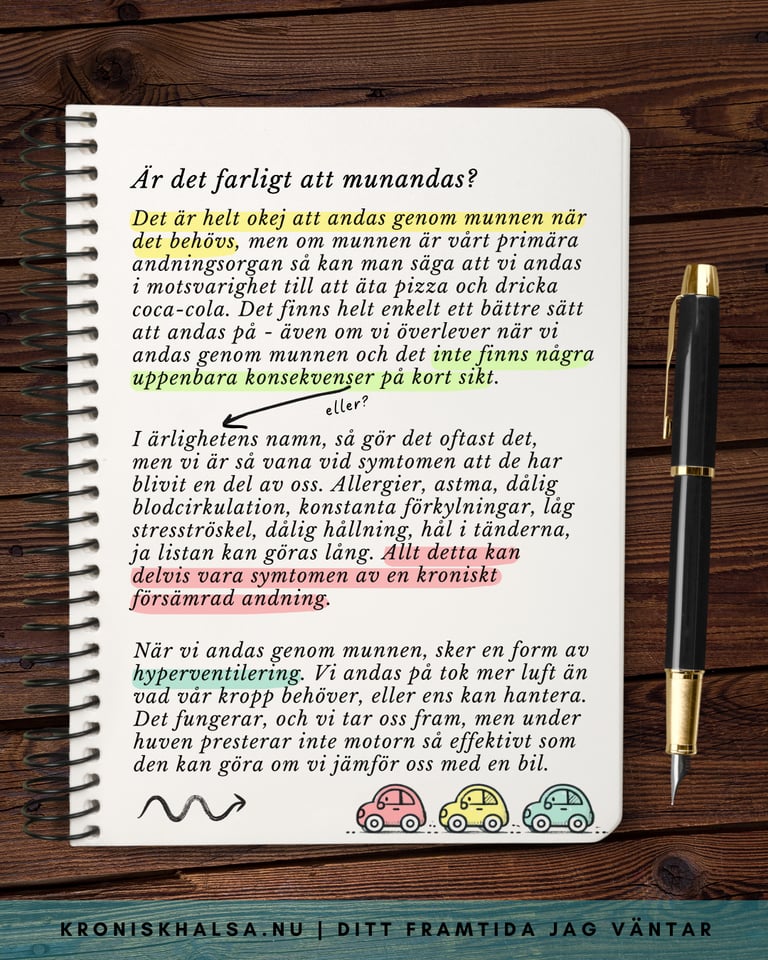 Är det farligt att munandas?
Det är helt okej att andas genom munnen när
det behövs, men om munnen är vårt primära
andningsorgan så kan man säga att vi andas
i motsvarighet till att äta pizza och dricka
coca-cola. Det finns helt enkelt ett bättre sätt
att andas på - även om vi överlever när vi
andas genom munnen och det inte finns några
uppenbara konsekvenser på kort sikt.
eller?
I ärlighetens namn, så gör det oftast det,
men vi är så vana vid symtomen att de har
blivit en del av oss. Allergier, astma, dålig
blodcirkulation, konstanta förkylningar, låg
stresströskel, dålig hållning, hål i tänderna,
ja listan kan göras lång. Allt detta kan
delvis vara symtomen av en kroniskt
försämrad andning.
När vi andas genom munnen, sker en form av
hyperventilering. Vi andas på tok mer luft än
vad vår kropp behöver, eller ens kan hantera.
Det fungerar, och vi tar oss fram, men under
huven presterar inte motorn så effektivt som
den kan göra om vi jämför oss med en bil.
KRONISKHALSA.NU | DITT FRAMTIDA JAG VÄNTAR